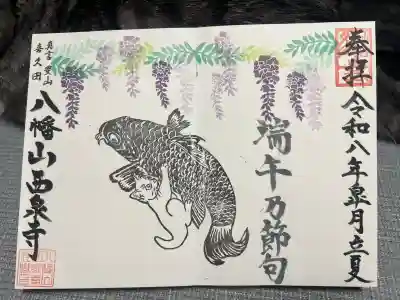 奉拝
令和八年皐月立夏
端午乃節句
真言豊山
喜久田
八幡山西泉寺